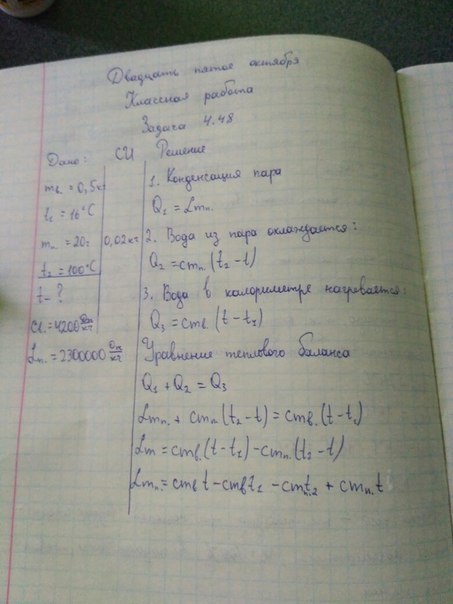 Двадцать пятое октября
Классная работа
Задача 4.48
Дано: СИ Решение
mв. = 0,5кг
t₁ = 16°C
mп. = 20г 0,02кг
t₂ = 100°C
t - ?
cв. = 4200 Дж/кг
Lп. = 2300000 Дж/кг
1. Конденсация пара
Q₁ = Lmп.
2. Вода из пара охлаждается:
Q₂ = cmп. (t₂ - t)
3. Вода в калориметре нагревается:
Q₃ = cmв. (t - t₁)
Уравнение теплового баланса
Q₁ + Q₂ = Q₃
Lmп. + cmп. (t₂ - t) = cmв. (t - t₁)
Lm = cmв. (t - t₁) - cmп. (t₂ - t)
Lmп. = cmвt - cmвt₁ - cmп.t₂ + cmп.t